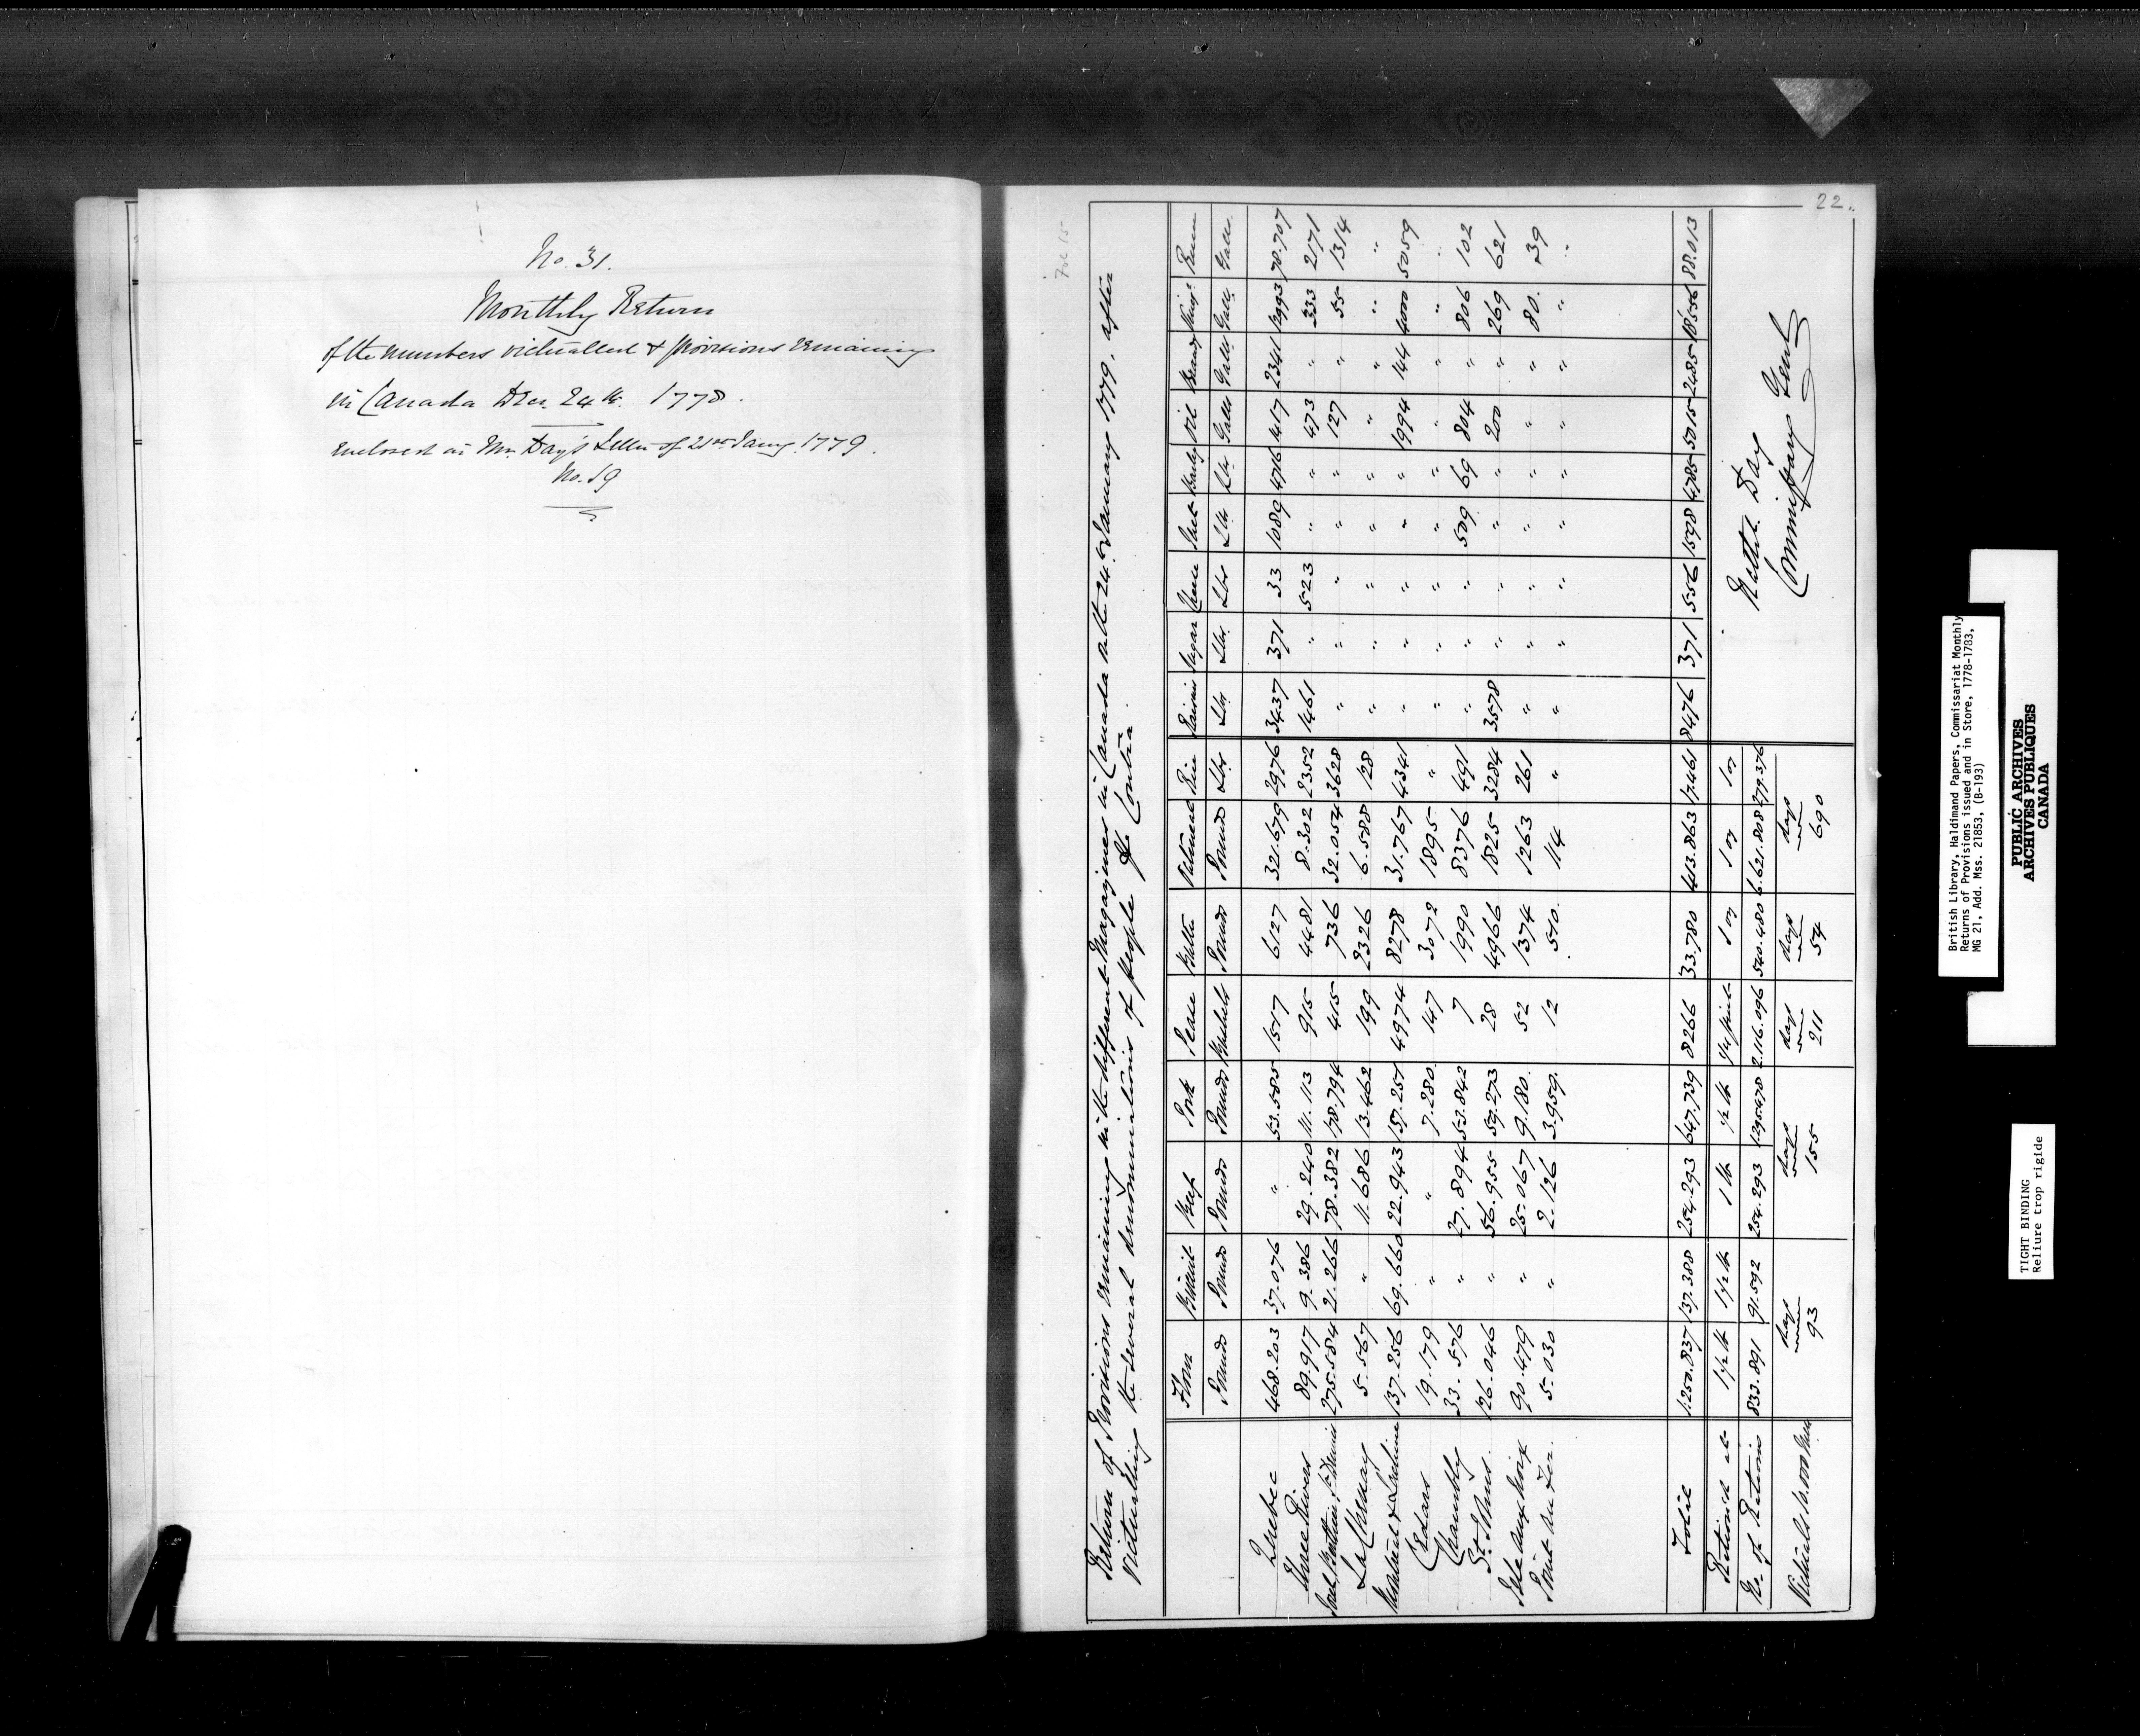 No. 31.
Monthly Return
of the numbers victualled & provisions remaining
in Canada Decr. 24th. 1778.
enclosed in Mr. Day's Letter of 21st Jany. 1779.
No. 19
22.
Fol 15
Return of Provisions remaining in the different Magazines in Canada the 24th January 1779, after
Victualling the several denominations of people Contra.
Flour Biscuit Beef Pork Pease Butter Oatmeal Rice Raisins Sugar Cheese Suet Barley Oil Brandy Rum
Pounds Pounds Pounds Pounds Bushels Pounds Pounds Lbs Lbs Lbs Lbs Lbs Lbs Galls Galls Galls Galls
Quebec 468.203 37.076 " 53.585 1517 6127 321.679 2976 3437 371 33 1089 4716 1417 2341 12993 78.707
Three Rivers 89.917 9.386 29.240 11.113 915 4481 8.302 2352 1461 " 523 " " 473 " 333 2171
Sorel, Berthier, St. Denis 275.584 21.266 78.382 178.794 415 736 32.054 3628 " " " " " 127 " 55 1314
La Chenay 5.567 " 11.686 13.462 199 2326 6.588 128 " " " " " " " " "
Montreal & Lachine 137.256 69.660 22.943 157.251 4974 8278 31.767 4341 " " " " " 1994 144 4000 5059
Cedars 19.179 " " 7.280 147 3072 1895 " " " " " " " " " "
Chambly 33.576 " 27.894 53.842 7 1990 8376 491 " " " 509 69 804 " 806 102
St. Johns 126.046 " 56.955 59.273 28 4966 1825 3284 3578 " " " " 200 " 269 621
Isle aux Noix 90.479 " 25.067 9.180. 52 1374 1263 261 " " " " " " " 80. 39
Point au Fer. 5.030 " 2.126 3.959. 12 510. 114 " " " " " " " " " "
Total 1.250.837 137.388 254.293 647.739 8266 33.780 413.863 17.461 8476 371 556 1598 4785 5015 2485 18556 88.013
Rationed at 1 1/2 lb 1 1/2 lb 1 lb 1/2 lb 1/4 pint 1 oz 1 oz 1 oz
No. of Rations 833.891 91.592 254.293 1.295.478 2.116.096 540.480 6.621.808 279.376
Victuals 10.000 Men days 93 days 155 days 211 days 54 days 690
Nathl. Day
Commissary Genl.
British Library, Haldimand Papers, Commissariat Monthly
Returns of Provisions issued and in Store, 1778-1783,
MG 21, Add. Mss. 21853, (B-193)
PUBLIC ARCHIVES
ARCHIVES PUBLIQUES
CANADA
TIGHT BINDING
Reliure trop rigide